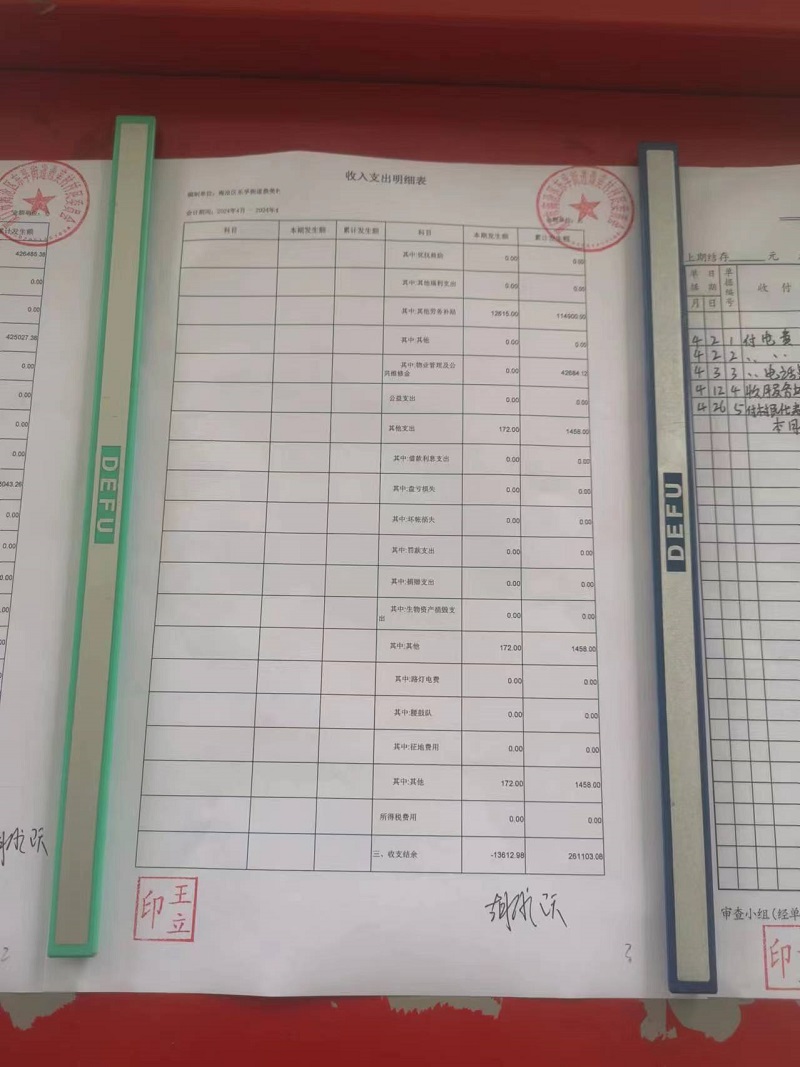 收入支出明细表
会计期间：2024年4月 - 2024年4
科目 本期发生额 累计发生额 科目 本期发生额 累计发生额
0.00 0.00
其中:其他福利支出 0.00 0.00
其中:其他劳务补贴 12615.00 114900.00
其中:其他 0.00 0.00
其中:物业管理及公共维修金 0.00
公益支出 0.00 0.00
其他支出 172.00 1458.00
其中:借款利息支出 0.00 0.00
其中:盘亏损失 0.00 0.00
其中:坏帐损失 0.00 0.00
其中:罚款支出 0.00 0.00
其中:捐赠支出 0.00 0.00
其中:生物资产损毁支出 0.00 0.00
其中:其他 172.00 1458.00
其中:路灯电费 0.00 0.00
其中:腰鼓队 0.00 0.00
其中:征地费用 0.00 0.00
其中:其他 172.00 1458.00
所得税费用 0.00 0.00
三、收支结余 -13612.98 261103.08
印 王立
3
DEFU
DEFU
累计发生额
426485.38
0.00
0.00
425027.38
0.00
0.00
0.00
0.00
0.00
0.00
2
上期结存 元
单据 日期 单据编号 收 付
月 日
4 2 1 付电费
4 2 2 〃 〃
4 3 3 〃 电话
4 12 4
4 26 5 付村民代表
本月
审查小组(经单
印